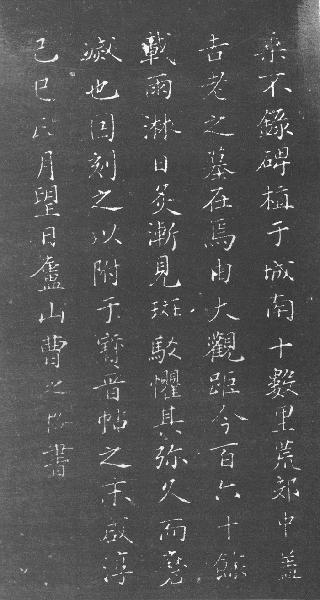 彙不錄碑植于城南十數里荒郊中蓋
吉老之墓在焉由大觀距今百六十餘
載雨淋日炙漸見斑駁懼其弥久而堙
滅也因刻之以附于寶晉帖之末咸淳
己巳正月望日廬山曹之格書